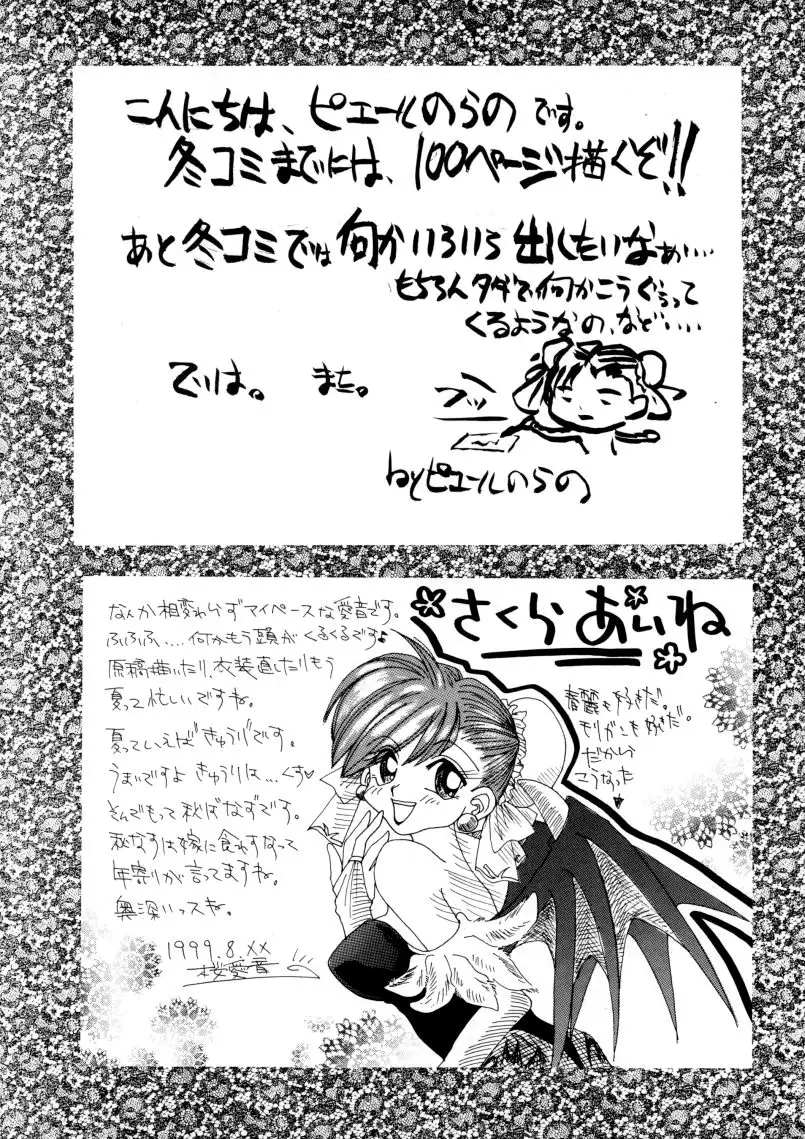 こんにちは、ピエールのらの です。
冬コミまでには、100ページ描くぞ!!
あと冬コミでは何かいろいろ出したいなぁ・・・
もちろんタダで何かこうぐぅって
くるようなの、など・・・・
では。 また。
ブッ
byピエールのらの
さくら あいね
なんか相変わらずマイペースな愛音です。
ふふふ....何かもう頭がくるくるです♪
原稿描いたり、衣装直したりもう
夏って忙しいですね。
夏っていえばきゅうりです。
うまいですよ きゅうりは...くす♡
さんでもって秋はなすです。
秋なすは嫁に食わすなって
年寄りが言ってますね。
奥深いっスね。
1999.8.XX
桜愛音
春麗も好きだ。
モリガンも好きだ。
だから
こうなった